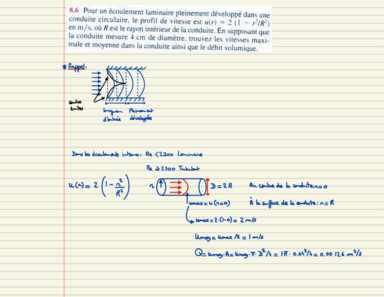 8.6 Pour un écoulement laminaire pleinement développé dans une
conduite circulaire, le profil de vitesse est u(r) = 2 (1 − r²/R²)
en m/s, où R est le rayon intérieur de la conduite. En supposant que
la conduite mesure 4 cm de diamètre, trouvez les vitesses maxi-
male et moyenne dans la conduite ainsi que le débit volumique.
Rappel:
Région Pleinement
d'entrée développée
Dans les écoulements internes: Re < 2300 Laminaire
Re ≥ 2300 Turbulent
u(r) = 2 (1 − r²/R²) r D = 2R Au centre de la conduite: r = 0
umax = u(r=0) À la surface de la conduite: r = R
umax = 2·(1-0) = 2 m/s
Umoy = umax/2 = 1 m/s
Q = Umoy·A = Umoy·π·D²/4 = 1·π·0.04²/4 = 0,00126 m³/s